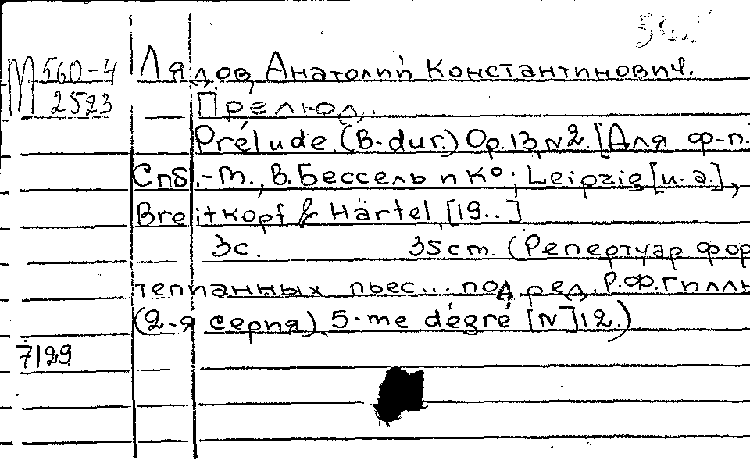 М 560-4 Лядов, Анатолий Константинович.
2523 Прелюд.
Prélude (B-dur.) Op.13, N2. [Для ф-п.
Спб.-М., В. Бессель и Ко; Leipzig [u. a.],
Breitkopf & Härtel, [19..]
3с. 35cm. (Репертуар фор
тепианных пьес... под ред. Р.Ф. Гилль
(2-я серия) 5-me dégré [N] 12.)
7129